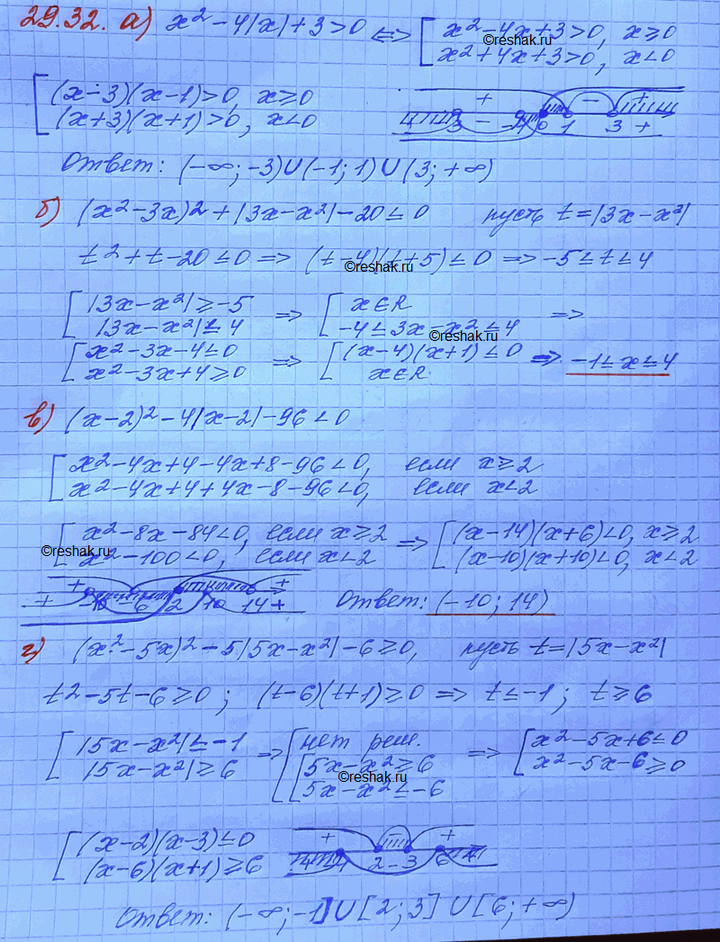 29.32. а) x²-4|x|+3>0 <=> [ x²-4x+3>0, x≥0
x²+4x+3>0, x<0
©reshak.ru
[ (x-3)(x-1)>0, x≥0
(x+3)(x+1)>0, x<0
+ - +
-3 - -1 0 1 3 +
Ответ: (-∞; -3)∪(-1; 1)∪(3; +∞)
б) (x²-3x)²+|3x-x²|-20≤0 пусть t=|3x-x²|
t²+t-20≤0 => (t-4)(t+5)≤0 => -5≤t≤4
©reshak.ru
[ |3x-x²|≥-5 => [ x∈R =>
|3x-x²|≤4 -4≤3x-x²≤4
©reshak.ru
[ x²-3x-4≤0 => [ (x-4)(x+1)≤0 => -1≤x≤4
x²-3x+4≥0 x∈R
в) (x-2)²-4|x-2|-96<0
[ x²-4x+4-4x+8-96<0, если x≥2
x²-4x+4+4x-8-96<0, если x<2
[ x²-8x-84<0, если x≥2 => [ (x-14)(x+6)<0, x≥2
©reshak.ru
x²-100<0, если x<2 (x-10)(x+10)<0, x<2
+ +
+ -10 -6 2 10 14 + Ответ: (-10; 14)
г) (x²-5x)²-5|5x-x²|-6≥0, пусть t=|5x-x²|
t²-5t-6≥0; (t-6)(t+1)≥0 => t≤-1; t≥6
[ |5x-x²|≤-1 => [ нет реш. => [ x²-5x+6≤0
|5x-x²|≥6 [ 5x-x²≥6 x²-5x-6≥0
©reshak.ru
5x-x²≤-6
[ (x-2)(x-3)≤0 + - +
(x-6)(x+1)≥6 -1 2 - 3 6
Ответ: (-∞; -1]∪[2; 3]∪[6; +∞)